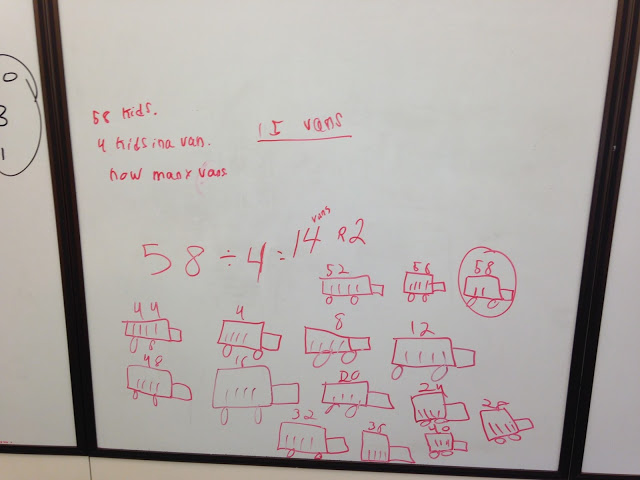 58 kids.
4 kids in a van.
how many vans
15 vans
58 ÷ 4 = 14 vans R2
52 56 58
44 4 8 12
48 16 20 24 28
32 36 40
0
3
1